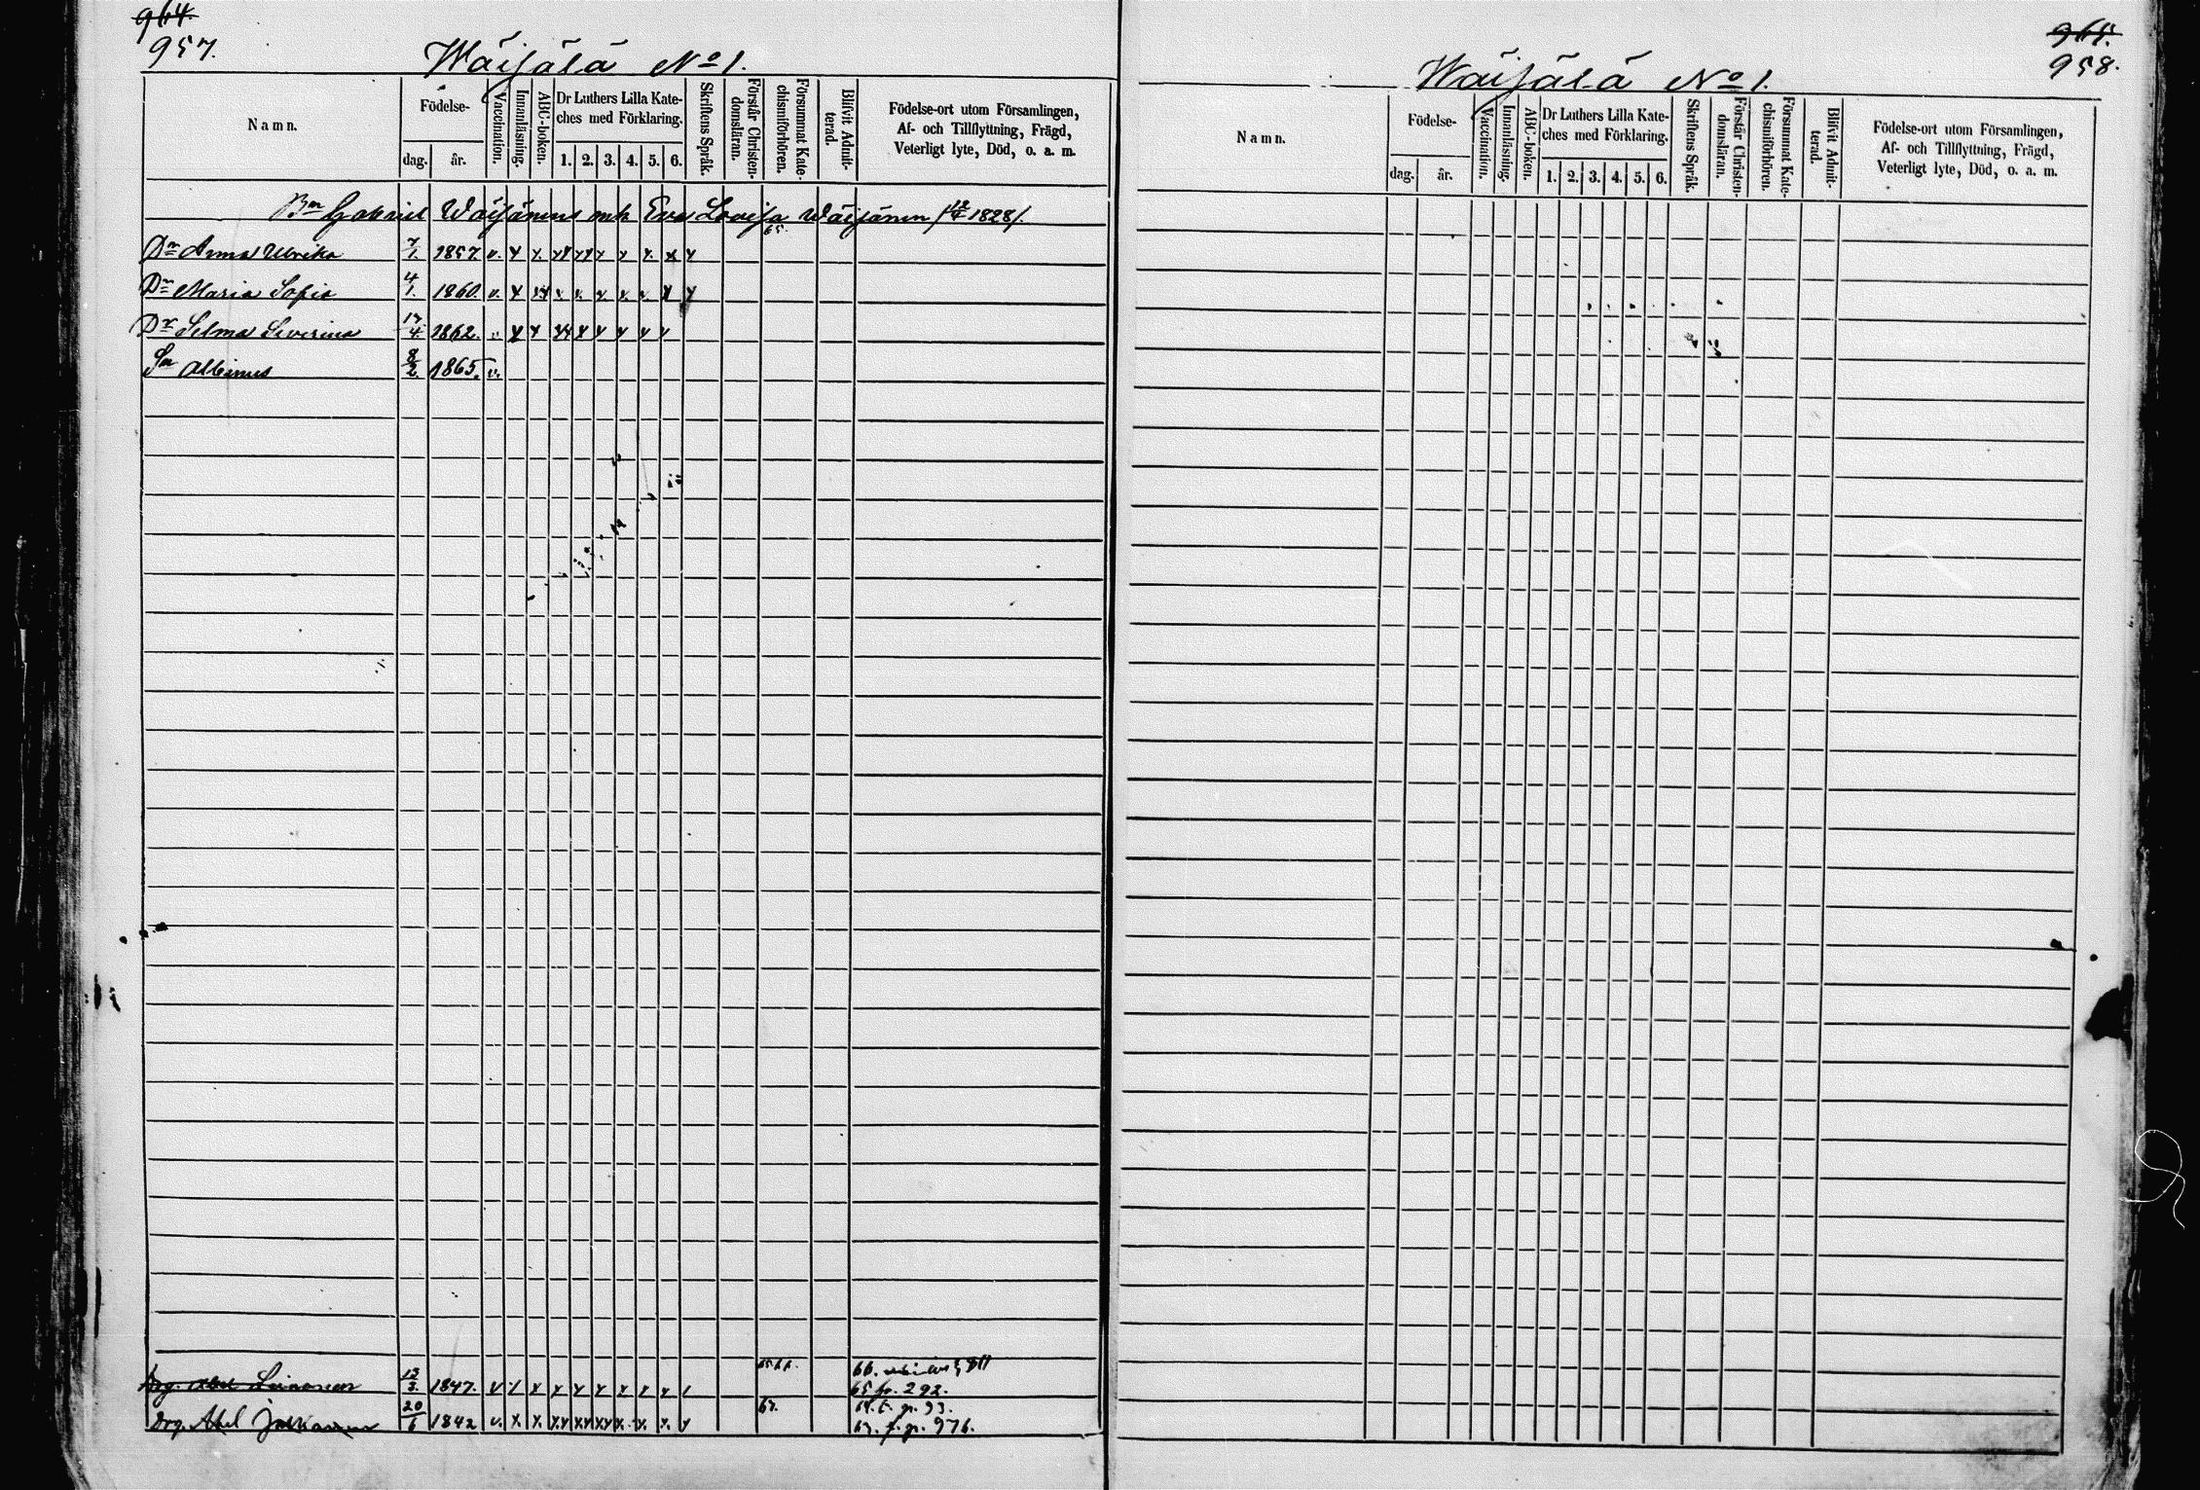 964.
957.
Wäisälä No 1.
Namn.
Födelse-
dag.
år.
Vaccination.
Innanläsning.
ABC-boken.
Dr Luthers Lilla Kate-
ches med Förklaring.
1. 2. 3. 4. 5. 6.
Skriftens Språk.
Förstår Christen-
domsläran.
Försummat Kate-
chismiförhören.
Blifvit Admit-
terad.
Födelse-ort utom Församlingen,
Af- och Tillflyttning, Frägd,
Veterligt lyte, Död, o. a. m.
Bn Gabriel Wäisänens enk Eva Lovisa Wäisänen 1828
65.
Dr Anna Ulrika 7/1 1857 v.
Dr Maria Sofia 4/1 1860. v.
Dr Selma Severina 17/4 1862. v
Sn Albinus 8/2 1865. v.
66.
Drg. Abel 13/3 1847. v 65 fr. 292.
67. 64. t. p. 93.
Drg. Abel 20/6 1842 v. 67. f. p. 976.
965.
958.
Wäisälä No 1.
Namn.
Födelse-
dag.
år.
Vaccination.
Innanläsning.
ABC-boken.
Dr Luthers Lilla Kate-
ches med Förklaring.
1. 2. 3. 4. 5. 6.
Skriftens Språk.
Förstår Christen-
domsläran.
Försummat Kate-
chismiförhören.
Blifvit Admit-
terad.
Födelse-ort utom Församlingen,
Af- och Tillflyttning, Frägd,
Veterligt lyte, Död, o. a. m.